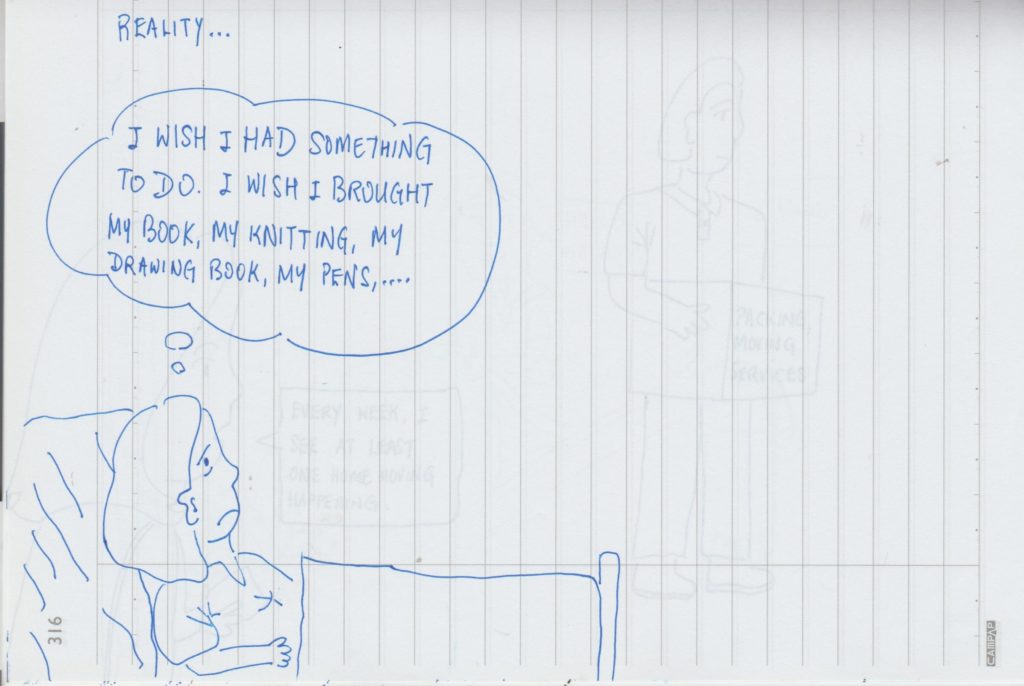 REALITY...
I WISH I HAD SOMETHING
TO DO. I WISH I BROUGHT
MY BOOK, MY KNITTING, MY
DRAWING BOOK, MY PENS,....
PACKING,
MOVING
SERVICES
EVERY WEEK, I
SEE AT LEAST
ONE HOME MOVING
HAPPENING.
316
CAMPAP